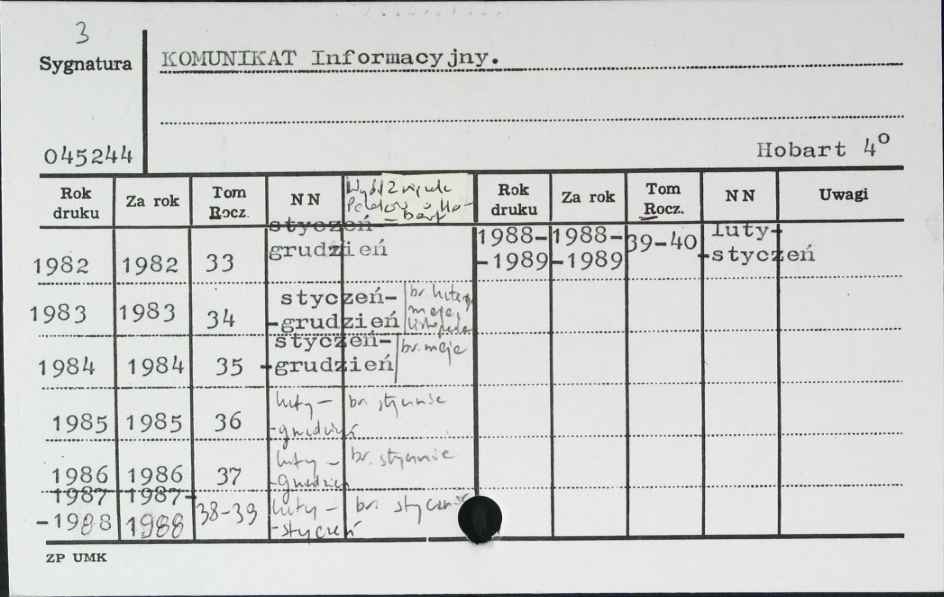 3
Sygnatura
KOMUNIKAT Informacyjny.
045244
Hobart 4°
Rok druku | Za rok | Tom Rocz. | NN | Wyd. Związek Polaków w Hobart | Rok druku | Za rok | Tom Rocz. | NN | Uwagi
1982 | 1982 | 33 | styczeń-grudzień | 1988--1989 | 1988--1989 | 39-40 | luty--styczeń
1983 | 1983 | 34 | styczeń--grudzień | br. lutego, maja, listopada
1984 | 1984 | 35 | styczeń--grudzień | br. maja
1985 | 1985 | 36 | luty--grudzień | br. stycznia
1986 | 1986 | 37 | luty--grudzień | br. stycznia
1987-1988 | 1987-1988 | 38-39 | luty--styczeń | br. stycznia
ZP UMK